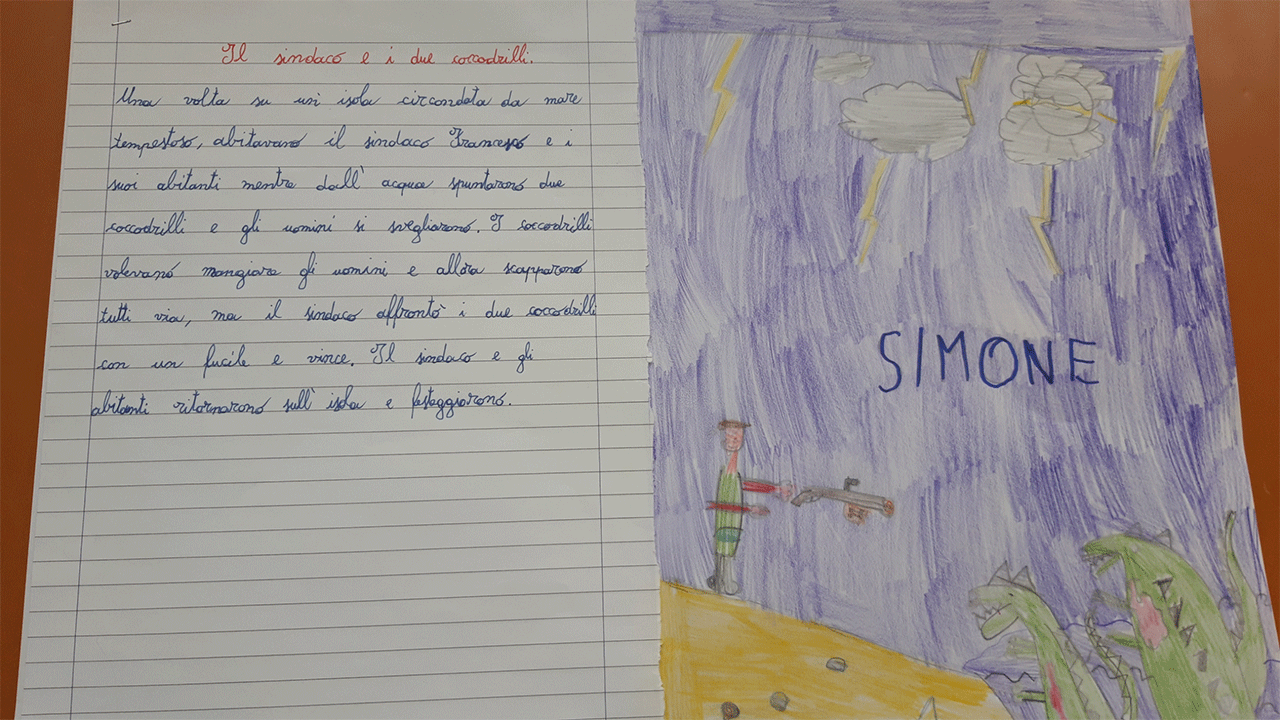 Il sindaco e i due coccodrilli.
Una volta su un'isola circondata da mare
tempestoso, abitavano il sindaco Francesco e i
suoi abitanti mentre dall' acqua spuntarono due
coccodrilli e gli uomini si svegliarono. I coccodrilli
volevano mangiare gli uomini e allora scapparono
tutti via, ma il sindaco affrontò i due coccodrilli
con un fucile e vince. Il sindaco e gli
abitanti ritornarono sull' isola e festeggiarono.
SIMONE